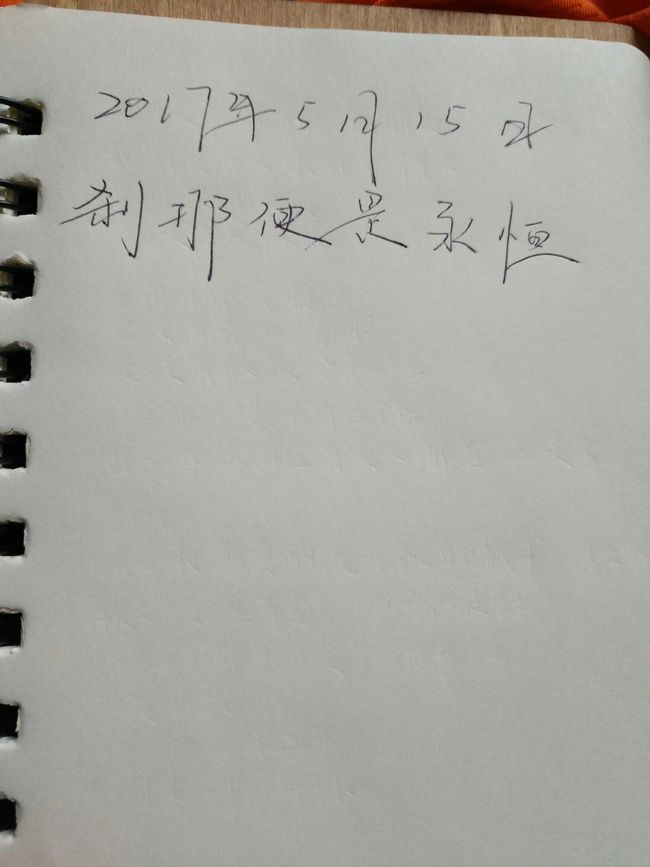 2017年5月15日
刹那便是永恒